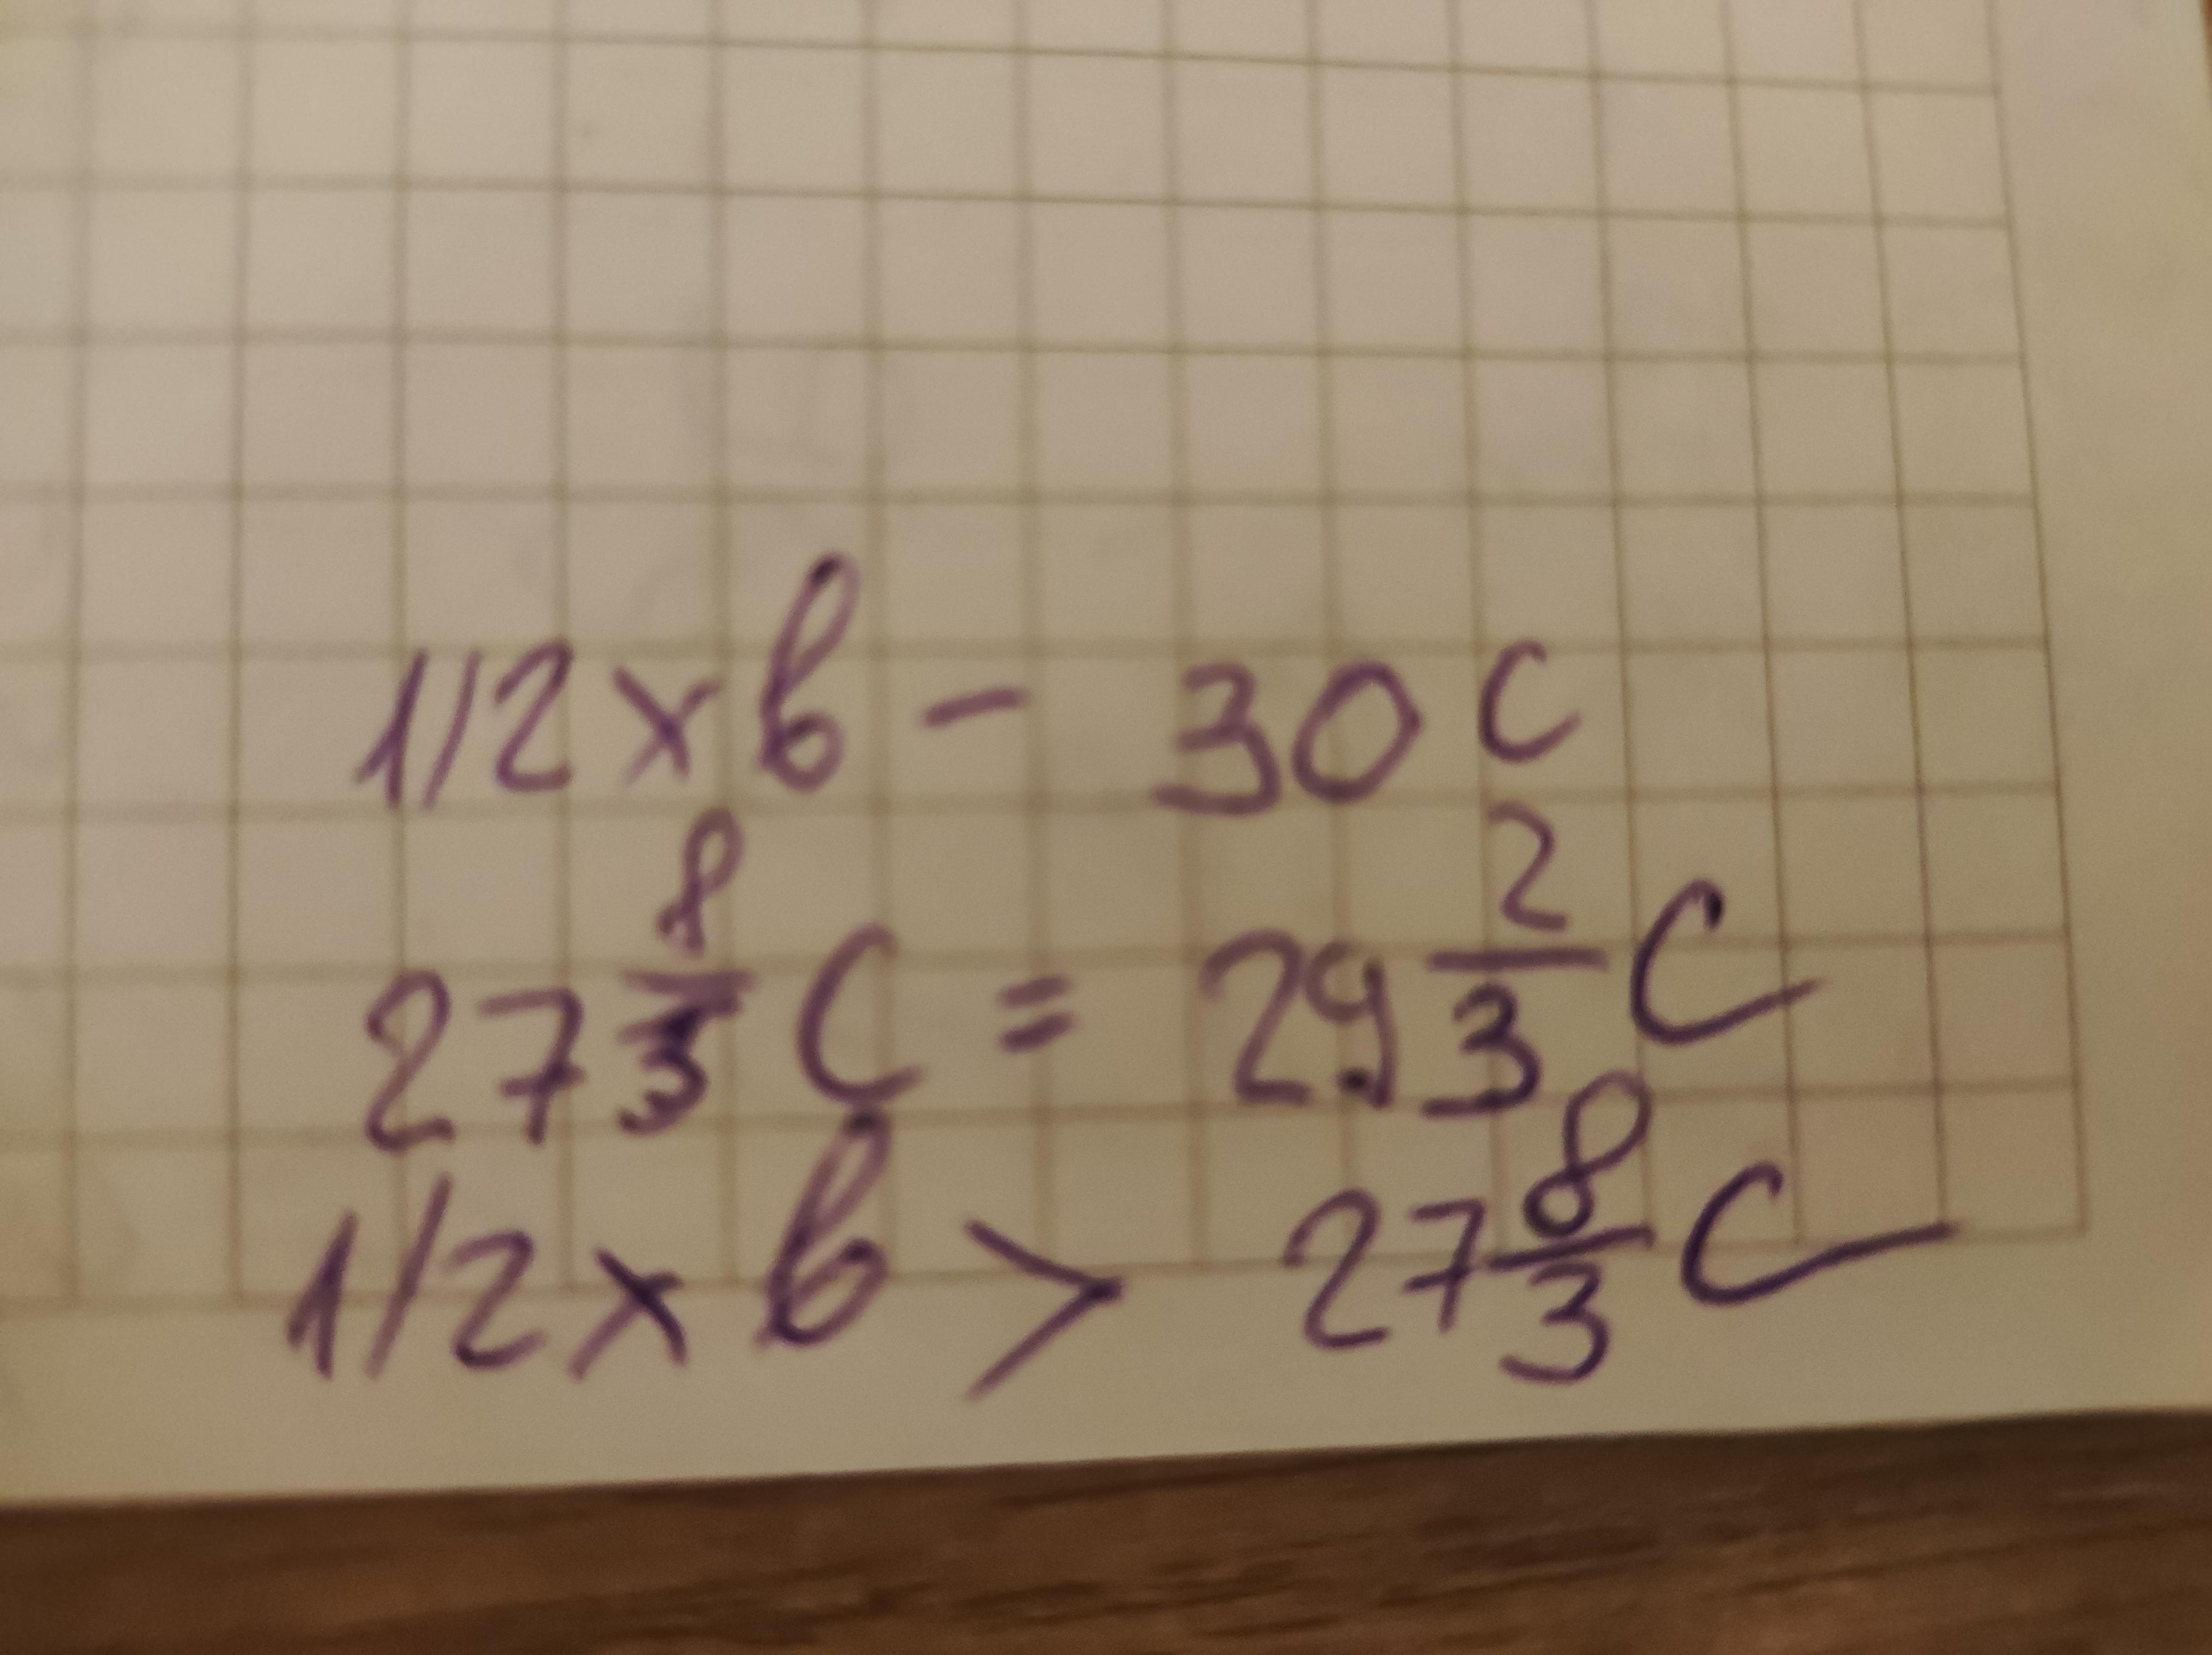 1/2 x в – 30 с
27 8/3 с = 29 2/3 с
1/2 x в > 27 8/3 с